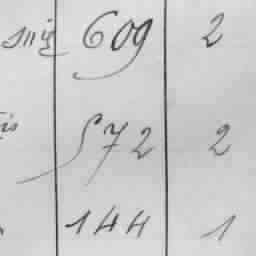 609 2
572 2
144 1